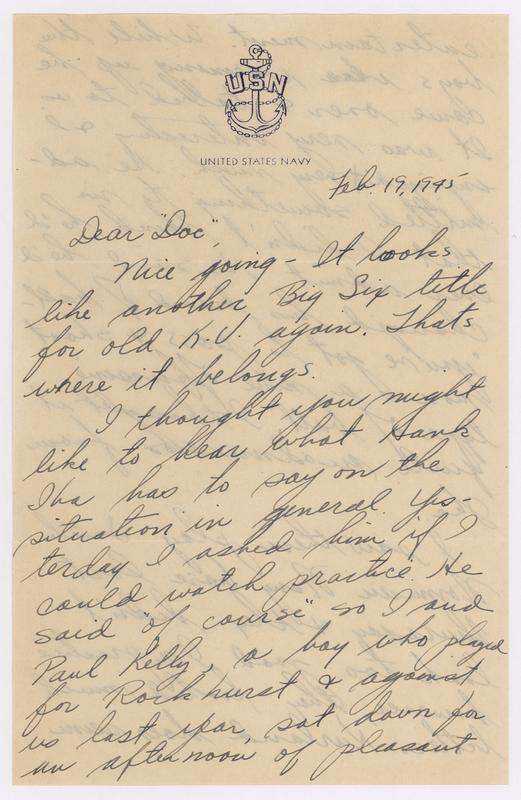 USN
UNITED STATES NAVY
Feb. 19, 1945
Dear "Doc",
Nice going - It looks
like another Big Six title
for old K.U. again. Thats
where it belongs.
I thought you might
like to hear what Hank
Iba has to say on the
situation in general. Yes-
terday I asked him if I
could watch practice. He
said "of course" so I and
Paul Kelly, a boy who played
for Rockhurst & against
us last year, sat down for
an afternoon of pleasant